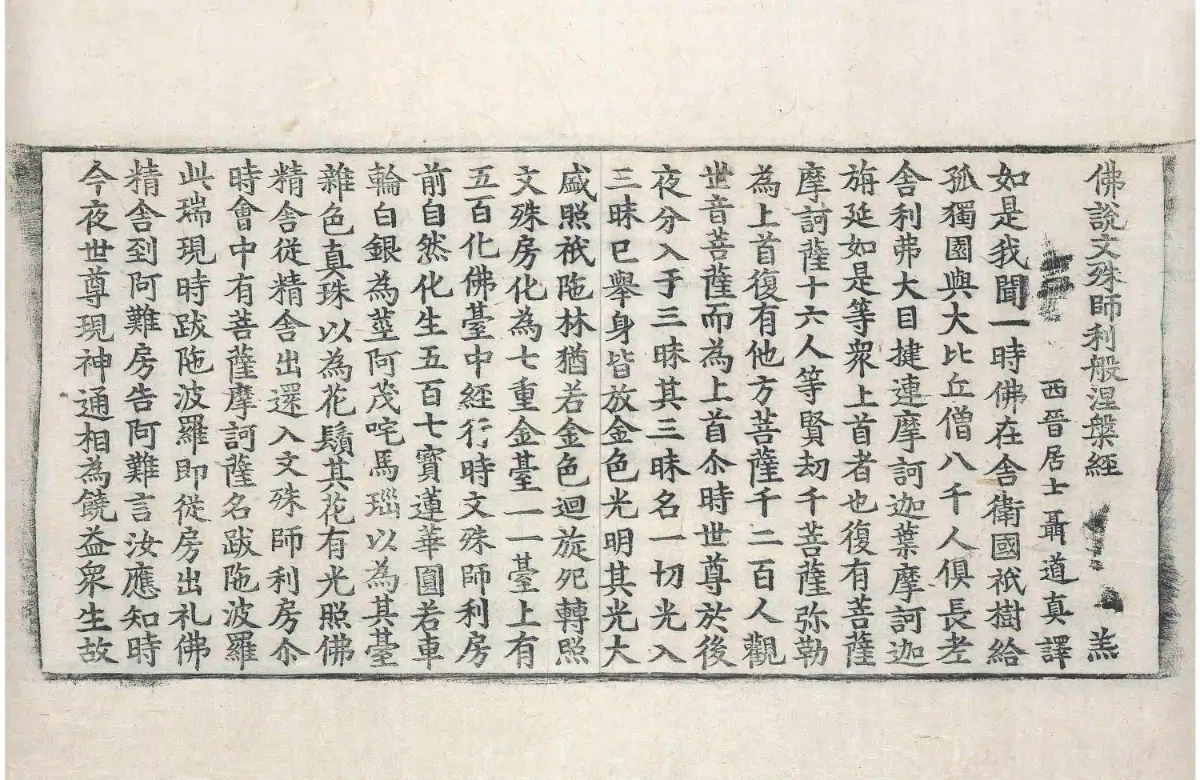 佛說文殊師利般涅槃經 羔
西晉居士聶道真譯
如是我聞一時佛在舍衛國祇樹給
孤獨園與大比丘僧八千人俱長老
舍利弗大目揵連摩訶迦葉摩訶迦
旃延如是等衆上首者也復有菩薩
摩訶薩十六人等賢劫千菩薩弥勒
為上首復有他方菩薩千二百人觀
世音菩薩而為上首尒時世尊於後
夜分入于三昧其三昧名一切光入
三昧已舉身皆放金色光明其光大
盛照祇陁林猶若金色迴旋宛轉照
文殊房化為七重金臺一一臺上有
五百化佛臺中經行時文殊師利房
前自然化生五百七寶蓮華圓若車
輪白銀為莖阿茂咤馬瑙以為其臺
雜色真珠以為花鬚其花有光照佛
精舍從精舍出還入文殊師利房尒
時會中有菩薩摩訶薩名跋陁波羅
此瑞現時跋陁波羅即從房出礼佛
精舍到阿難房告阿難言汝應知時
今夜世尊現神通相為饒益衆生故